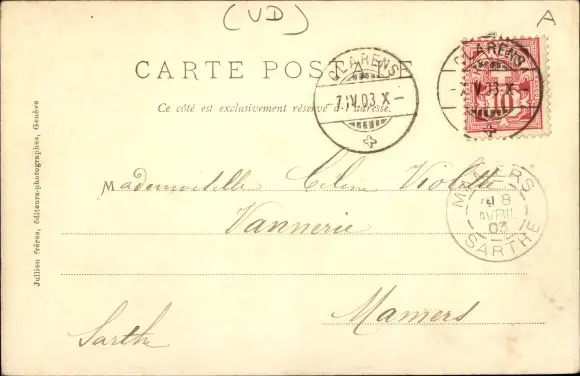 (VD)
A
CARTE POSTALE
Ce côté est exclusivement réservé à l'adresse.
CLARENS
7.IV.03.X—
CLARENS
-7.IV.03.X—
10
MAMERS
8
AVRIL
03
SARTHE
Mademoiselle Celina Violette
Vannerie
Mamers
Sarthe
Jullien frères, éditeurs-photographes, Genève